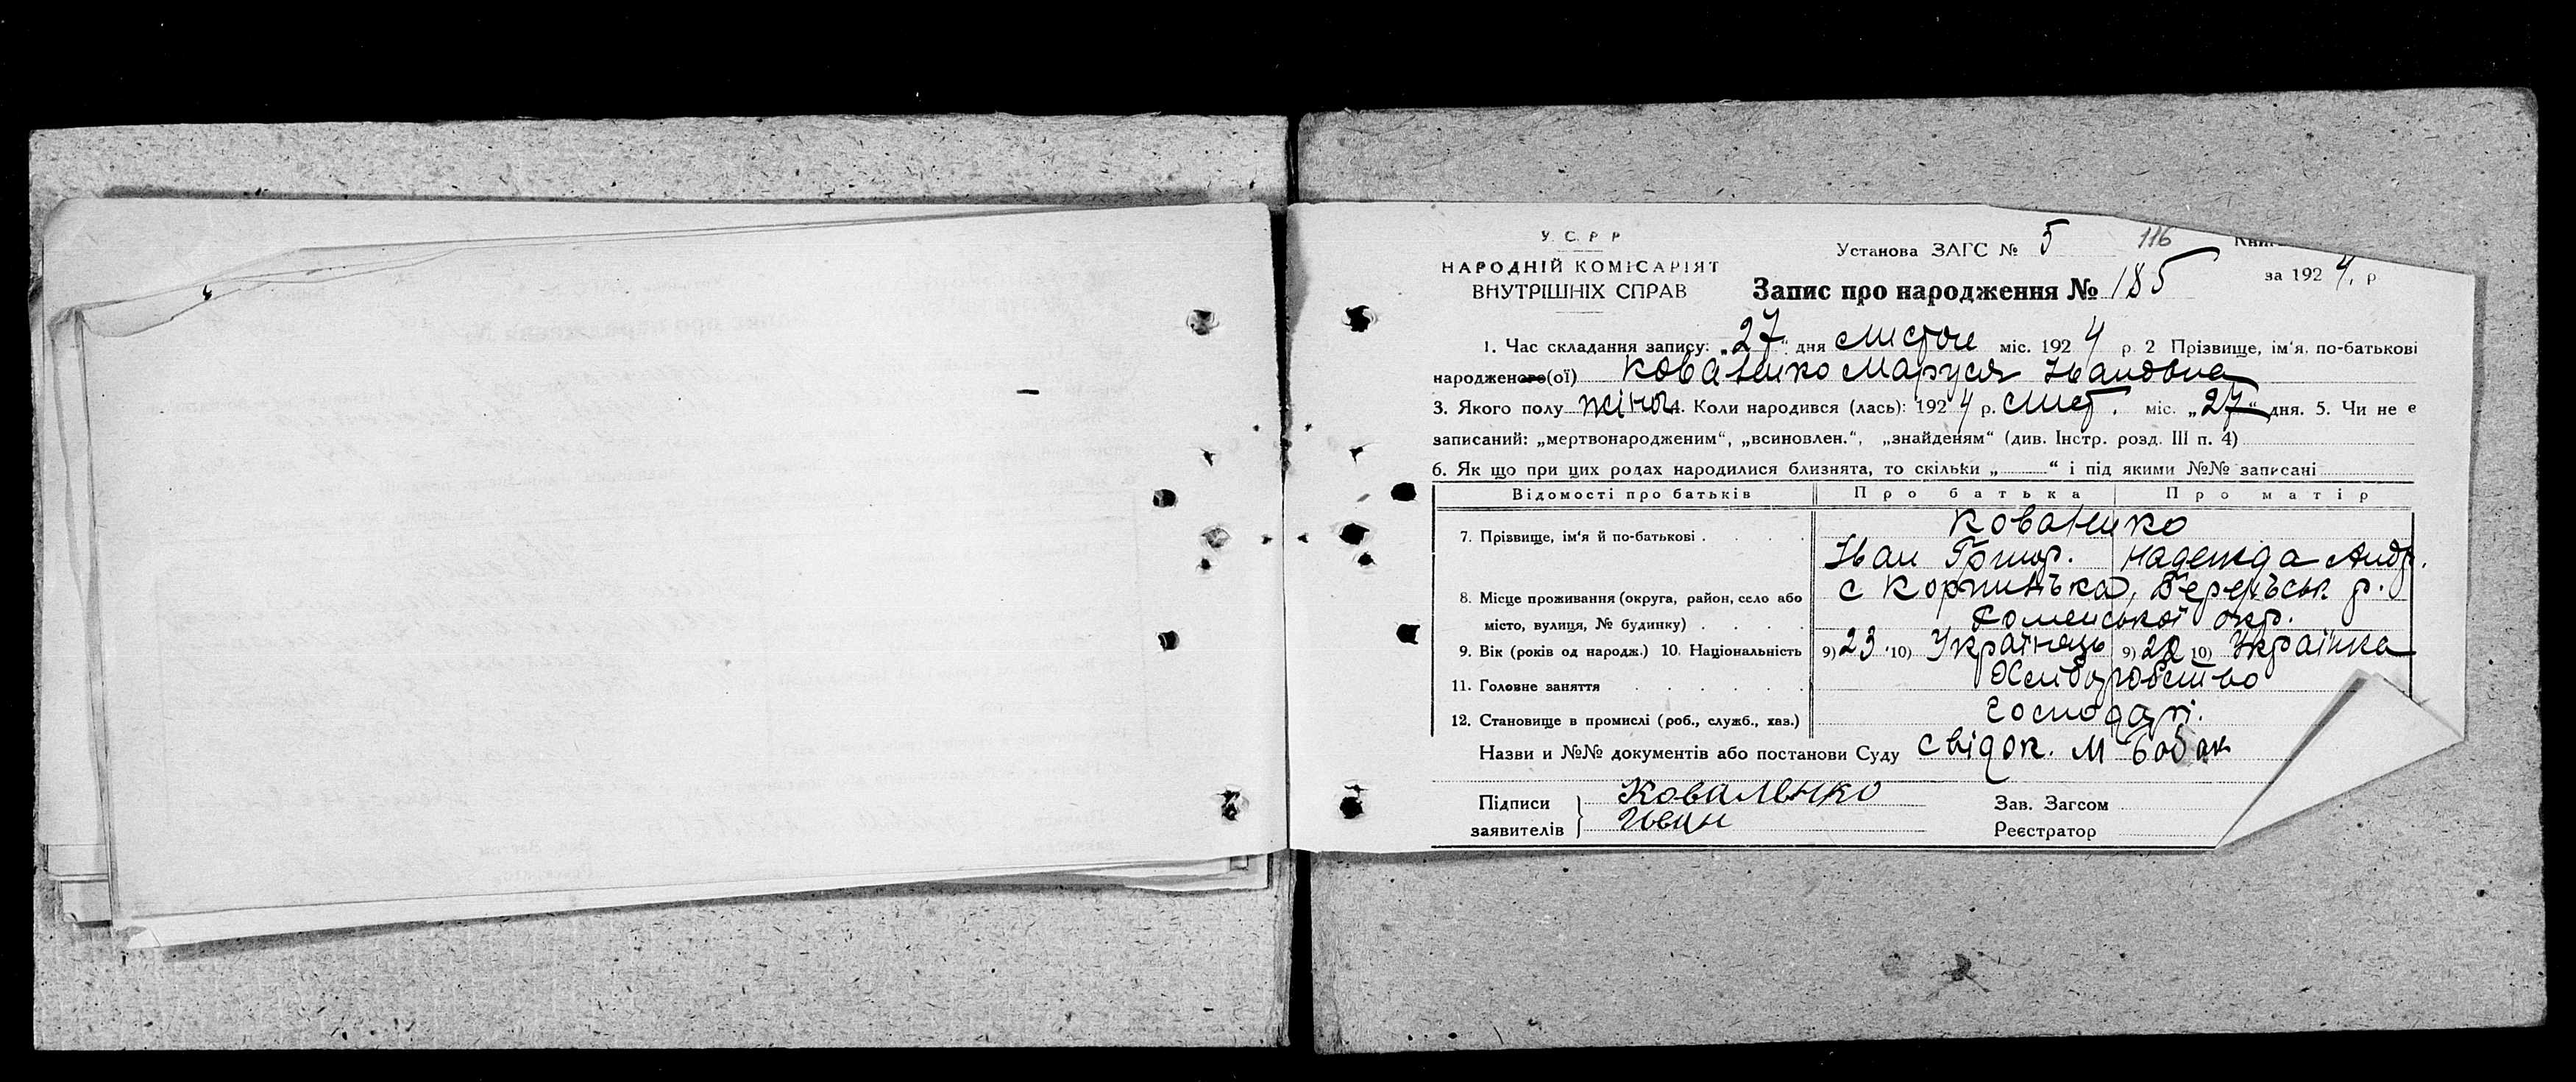 У. С. Р. Р.
НАРОДНІЙ КОМІСАРІЯТ
ВНУТРІШНІХ СПРАВ
Установа ЗАГС № 5 116
за 1924. р
Запис про народження № 185
1. Час складання запису: „27“ дня листоп міс. 1924 р. 2 Прізвище, ім‘я, по-батькові
народженого(ої) Коваленко Маруся Івановна
3. Якого полу жіноч. 4. Коли народився (лась): 1924 р. лист. міс. „27“ дня. 5. Чи не є
записаний: „мертвонародженим“, „всиновлен.“, „знайденям“ (див. Інстр. розд. III п. 4)
6. Як що при цих родах народилися близнята, то скільки „ “ і під якими №№ записані
Відомості про батьків Про батька Про матір
7. Прізвище, ім‘я й по-батькові . . . . Коваленко
Іван Григор. Надежда Андр.
8. Місце проживання (округа, район, село або с
місто, вулиця, № будинку) . . . . Роменської окр.
9. Вік (років од народж.) 10. Національність 9) 23 10) Українець 9) 22 10) Українка
11. Головне заняття . . . . . Хлиборобство
12. Становище в промислі (роб., служб., хаз.) господарі.
Назви и №№ документів або постанови Суду свідок. М Бобок
Підписи заявителів Коваленко
Иван
Зав. Загсом
Реєстратор